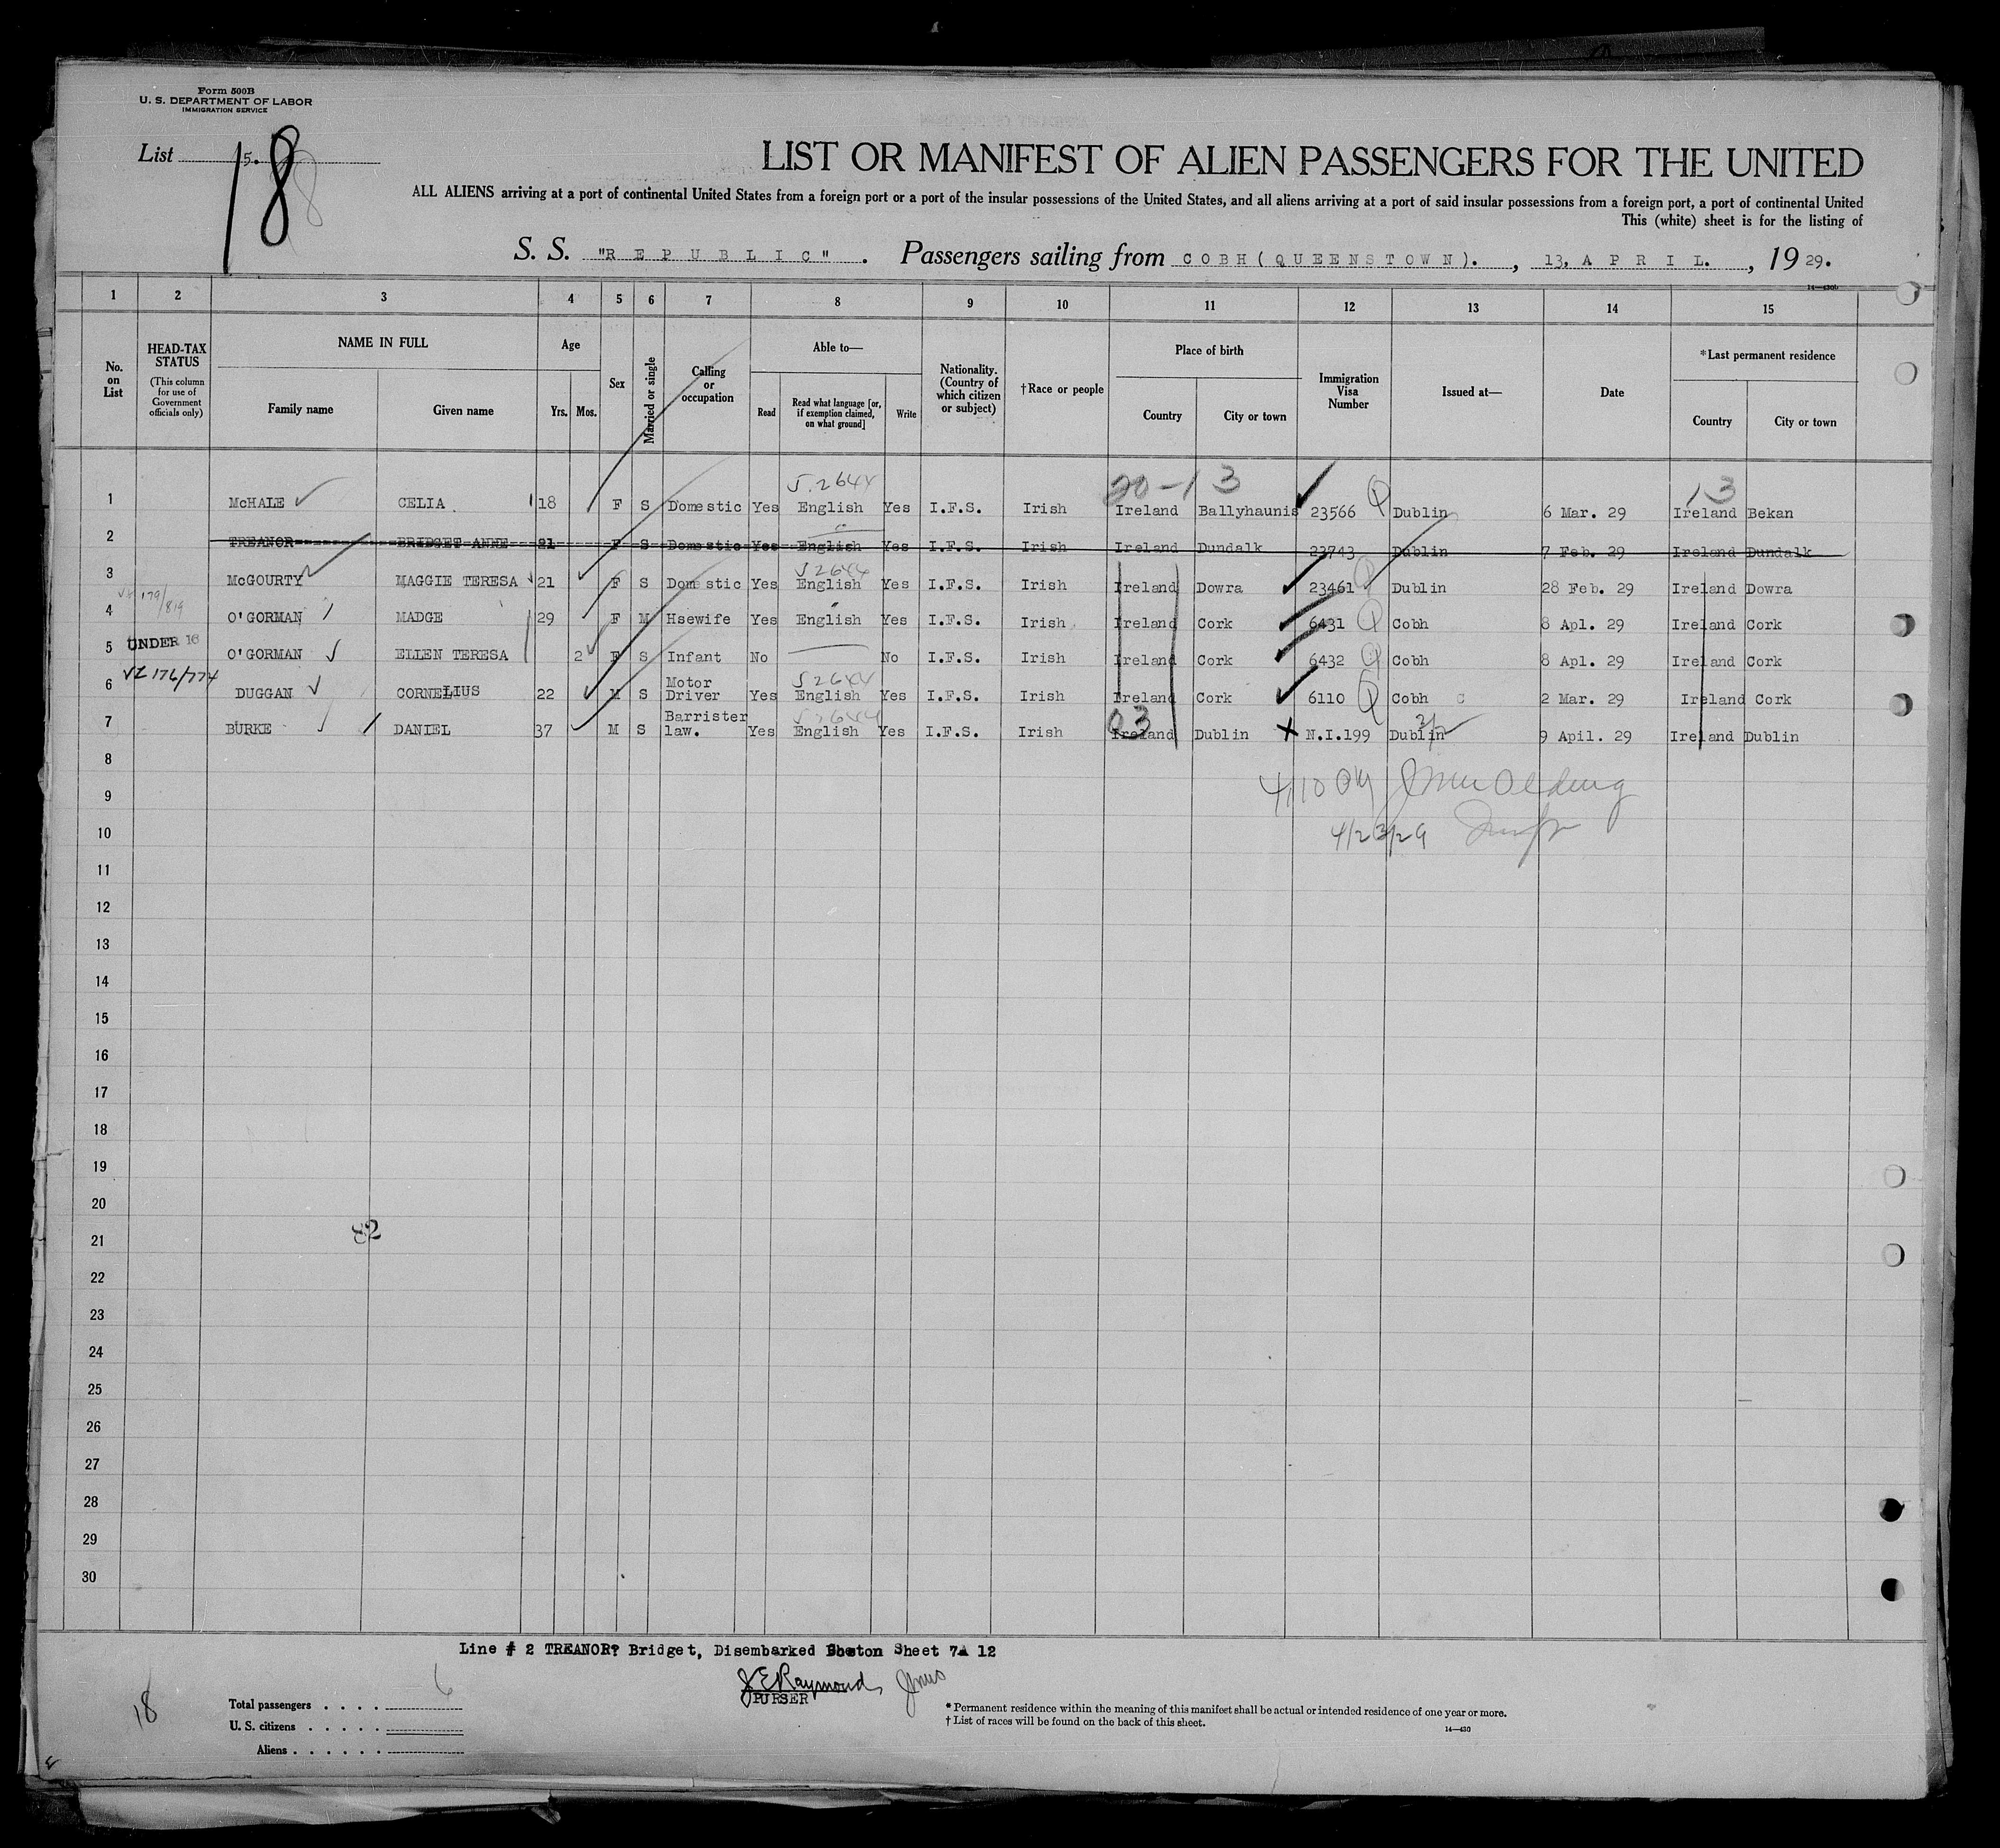 Form 500B
U. S. DEPARTMENT OF LABOR
IMMIGRATION SERVICE
List 5.
18
LIST OR MANIFEST OF ALIEN PASSENGERS FOR THE UNITED
ALL ALIENS arriving at a port of continental United States from a foreign port or a port of the insular possessions of the United States, and all aliens arriving at a port of said insular possessions from a foreign port, a port of continental United
This (white) sheet is for the listing of
S. S. "REPUBLIC". Passengers sailing from COBH(QUEENSTOWN)., 13, APRIL., 1929.
14—430b
1 2 3 4 5 6 7 8 9 10 11 12 13 14 15
No. on List
HEAD-TAX STATUS (This column for use of Government officials only)
NAME IN FULL
Family name Given name
Age
Yrs. Mos.
Sex
Married or single
Calling or occupation
Able to—
Read Read what language [or, if exemption claimed, on what ground] Write
Nationality. (Country of which citizen or subject)
†Race or people
Place of birth
Country City or town
Immigration Visa Number
Issued at—
Date
*Last permanent residence
Country City or town
20-13 13
1 McHALE CELIA 18 F S Domestic Yes English Yes I.F.S. Irish Ireland Ballyhaunis 23566 Dublin 6 Mar. 29 Ireland Bekan
2 TREANOR BRIDGET ANNE 21 F S Domestic Yes English Yes I.F.S. Irish Ireland Dundalk 23743 Dublin 7 Feb. 29 Ireland Dundalk
3 McGOURTY MAGGIE TERESA 21 F S Domestic Yes English Yes I.F.S. Irish Ireland Dowra 23461 Dublin 28 Feb. 29 Ireland Dowra
179/819
4 O'GORMAN MADGE 29 F M Hsewife Yes English Yes I.F.S. Irish Ireland Cork 6431 Cobh 8 Apl. 29 Ireland Cork
UNDER 16
5 O'GORMAN ELLEN TERESA 2 F S Infant No No I.F.S. Irish Ireland Cork 6432 Cobh 8 Apl. 29 Ireland Cork
176/774
6 DUGGAN CORNELIUS 22 M S Motor Driver Yes English Yes I.F.S. Irish Ireland Cork 6110 Cobh 2 Mar. 29 Ireland Cork
03
7 BURKE DANIEL 37 M S Barrister law. Yes English Yes I.F.S. Irish Ireland Dublin N.I.199 Dublin 9 Apil. 29 Ireland Dublin
8
9
4/23/29
10
11
12
13
14
15
16
17
18
19
20
82
21
22
23
24
25
26
27
28
29
30
Line # 2 TREANOR? Bridget, Disembarked Boston Sheet 7A 12
J E Raymond
PURSER
18
Total passengers . . . . 6
U. S. citizens . . . . .
Aliens . . . . . .
* Permanent residence within the meaning of this manifest shall be actual or intended residence of one year or more.
† List of races will be found on the back of this sheet.
14—430